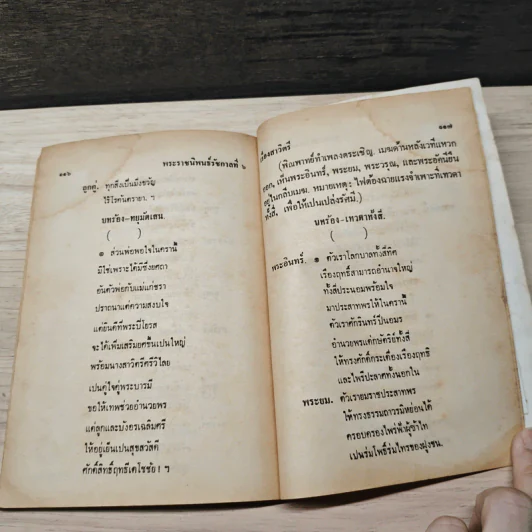 ๑๑๖
พระราชนิพนธ์รัชกาลที่ ๖
ลูกคู่, ทุกสิ่งเป็นมิ่งขวัญ
ไร้โรคันตรายา. ฯ
บทร้อง-ทยุมัตเสน.
( )
๑ ส่วนพ่อพอใจในครานี้
มิใช่เพราะได้มีซึ่งยศถา
อันตัวพ่อกับแม่แก่ชรา
ปราถนาแต่ความสงบใจ
แต่ยินดีที่พระปิโยรส
จะได้เพิ่มเสริมยศขึ้นเปนใหญ่
พร้อมนางสาวิตรีศรีวิไลย
เปนคู่ใจคู่พระบารมี
ขอให้เทพช่วยอำนวยพร
แด่ลูกและบังอรเฉลิมศรี
ให้อยู่เย็นเปนสุขสวัสดี
ศักดิ์สิทธิ์ฤทธีเดโชชัย! ฯ
๑๑๗
เรื่องสาวิตรี
(พิณพาทย์ทำเพลงตระเชิญ, เมฆด้านหลังเวทีแหวก
ออก, เห็นพระอินทร์, พระยม, พระวรุณ, และพระอัคนียืน
อยู่ในกลีบเมฆ. หมายเหตุ: ไฟต้องฉายแรงจำเพาะที่เทวดา
ทั้งสี่, เพื่อให้เปนเปล่งรัศมี.)
บทร้อง-เทวดาทั้งสี่.
( )
พระอินทร์. ๑ ตัวเราโลกบาลทั้งสี่ทิศ
เรืองฤทธิ์สามารถอำนาจใหญ่
ทั้งสี่ประนอมพร้อมใจ
มาประสาทพรให้ในครานี้
ตัวเราศักรินทร์ปิ่นอมร
อำนวยพรแด่กษัตริย์ทั้งสี่
ให้ทรงศักดิ์กระเดื่องเรืองฤทธิ
และไพรีประลาศทั้งนอกใน
พระยม. ตัวเรายมราชประสาทพร
ให้ทรงธรรมถาวรมิหย่อนได้
ครอบครองไพร่ฟ้าผู้ข้าไท
เปนร่มโพธิ์ร่มไทรของฝูงชน.